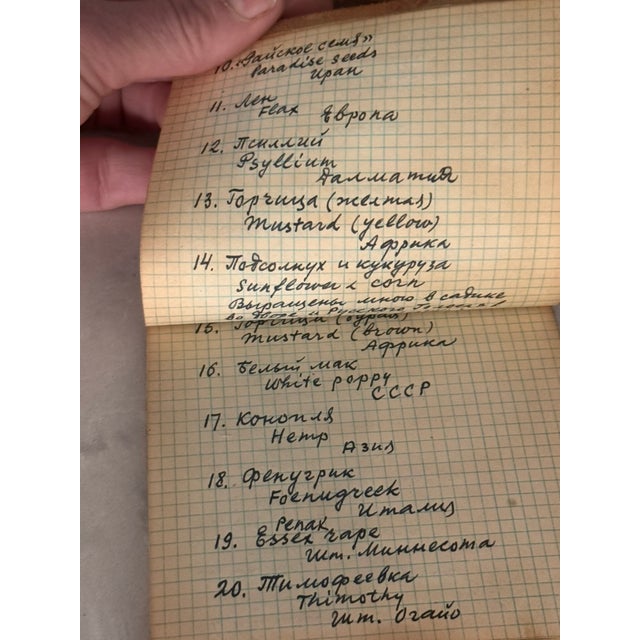 10. «Райское семя»
Paradise seeds
Иран
11. Лен
Flax Европа
12. Псиллий
Psyllium
Далматия
13. Горчица (желтая)
Mustard (yellow)
Африка
14. Подсолнух и кукуруза
Sunflower & corn
Выращены мною в садике
во дворе и Русского
15. Горчица (бурая)
Mustard (brown)
Африка
16. Белый мак
White poppy
СССР
17. Конопля
Hemp
Азия
18. Фенугрик
Foenugreek
Италия
Репак
19. Essex rape
Шт. Миннесота
20. Тимофеевка
Thimothy
Шт. Огайо